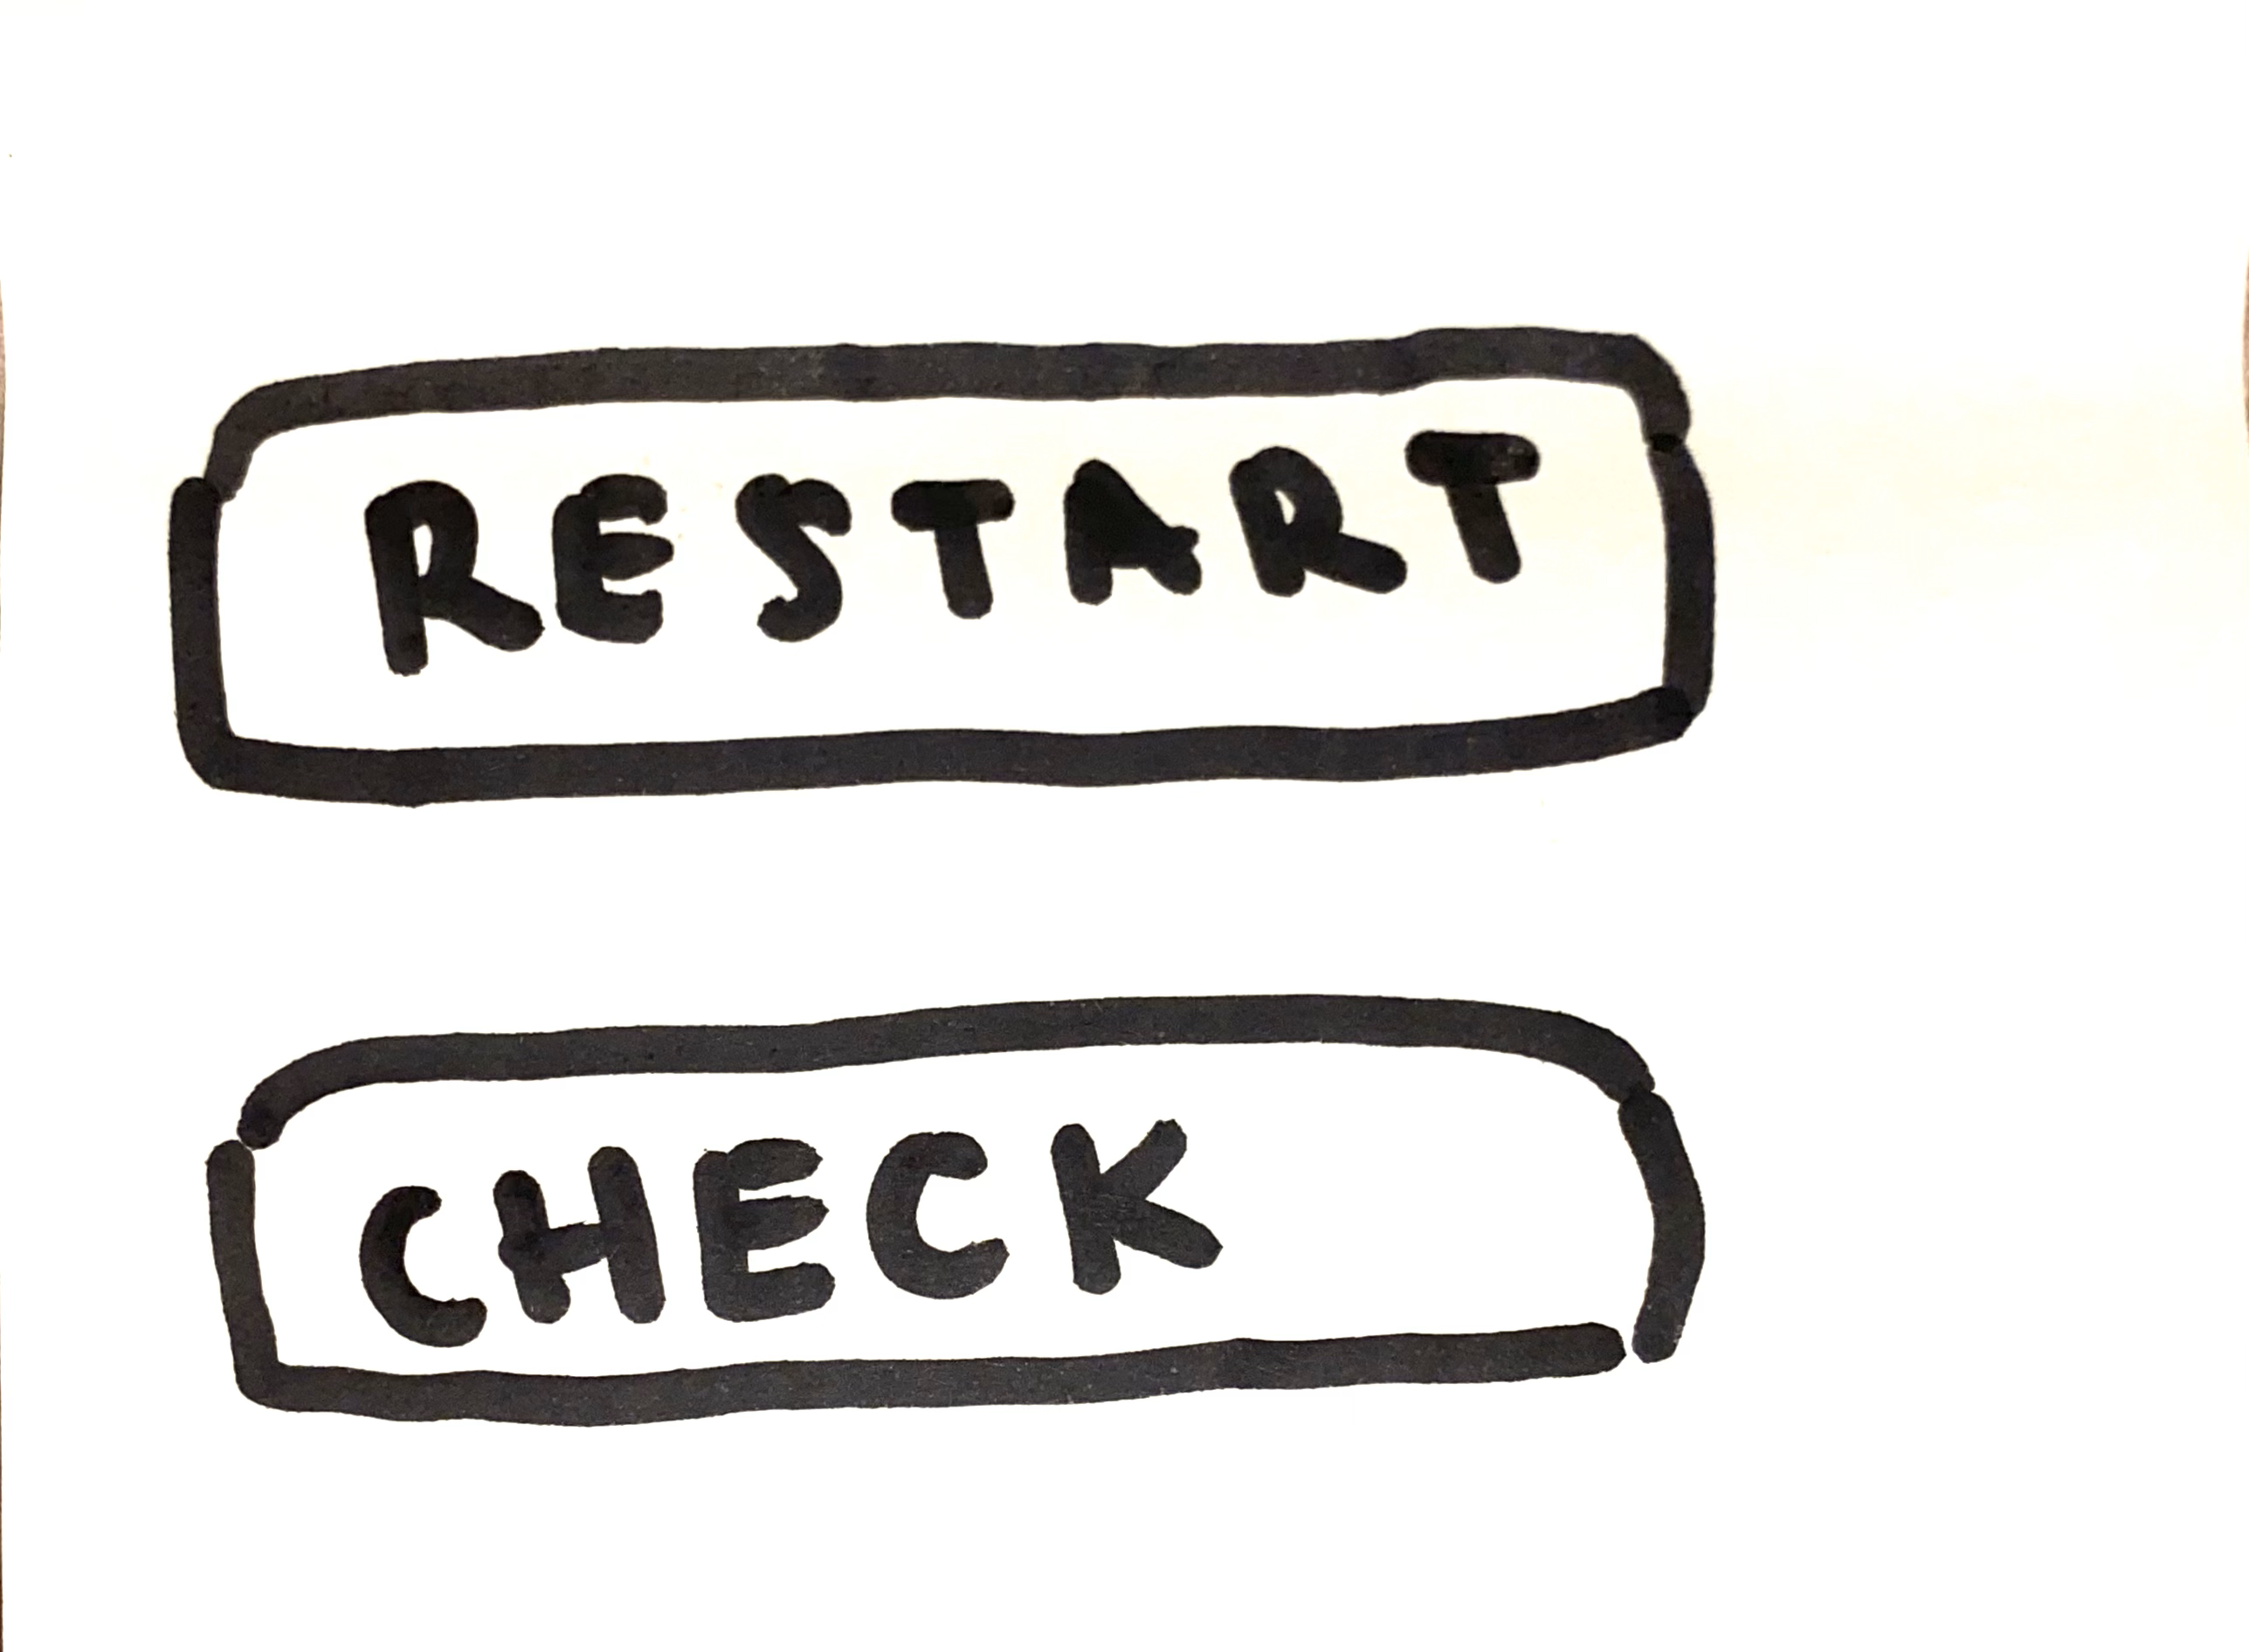 RESTART
CHECK